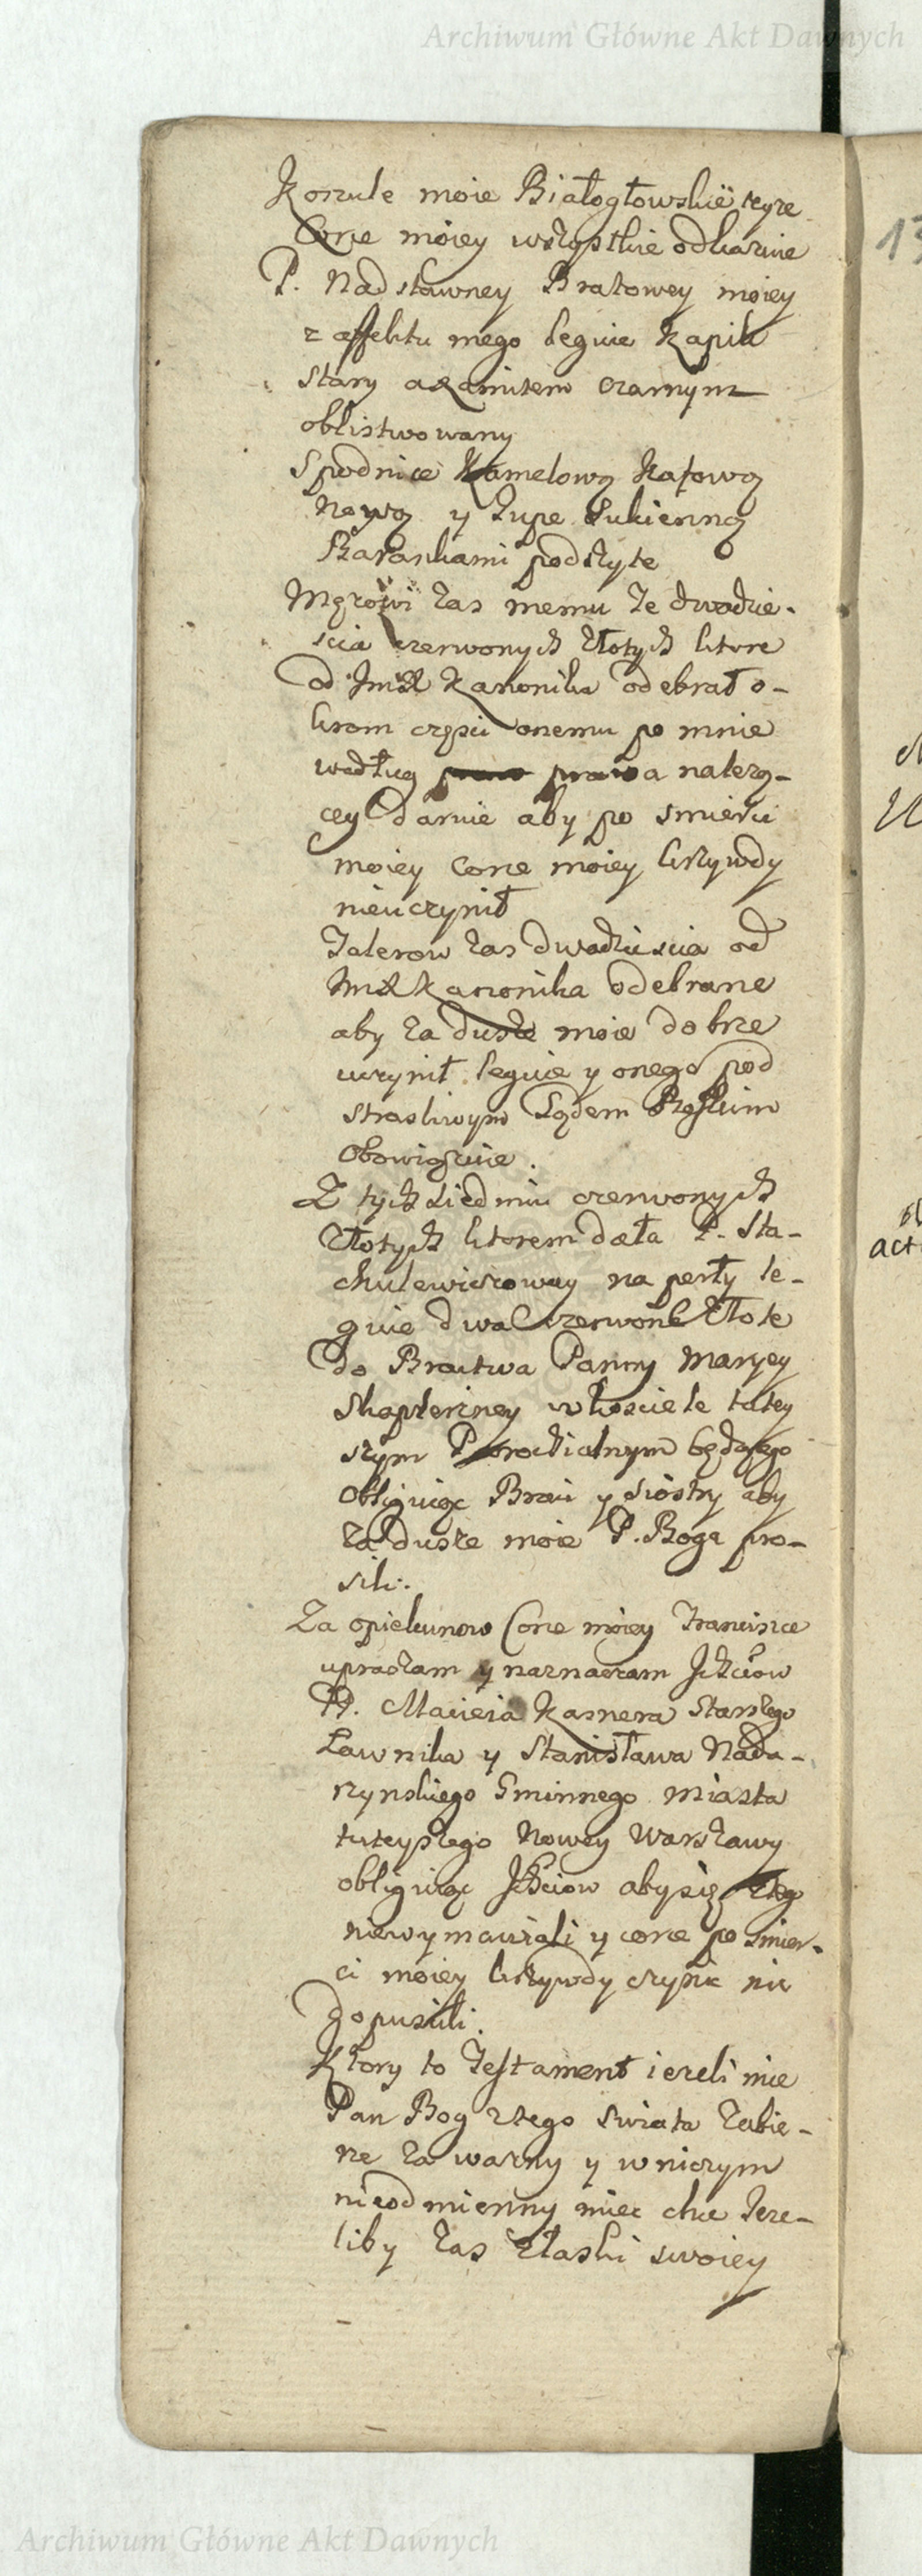 Archiwum Główne Akt Dawnych
Koszule moie Białogłowskie teyze
Corce moiey wszystkie odkazuie
P. Nadstawney Bratowey moiey
z affektu mego leguie Kapik
stary axamitem czarnym
oblistwowany
Spodnice Kamelową
Nową y Jupe sukienną
Barankami podszyte
Męzowi zas memu te dwadzie-
scia czerwonych złotych ktore
od Kanonika odebrał o-
krom częsci onemu po mnie
według prawa nalezą-
cey daruie aby po smierci
moiey Corce moiey krzywdy
nieuczynił
Talerow zas dwadziescia od
Kanonika odebrane
aby za dusze moie dobrze
uczynił leguie y onego pod
strasliwym Sądem Boskim
Obowiązuie.
Z tych siedmiu czerwonych
złotych ktorem dała P. Sta-
chulewiczowey na perły le-
guie dwa Czerwone Złote
do Bractwa Panny Maryey
Skaplerzney w kosciele tutey
szym Parochialnym będącego
obliguiąc Braci y siostry aby
za dusze moie P. Boga pro-
sili.
Za opiekunow Corce moiey Franciszce
upraszam y naznaczam
PP. Macieia Kasnera Starszego
Ławnika y Stanisława Nada-
rzynskiego Gminnego Miasta
tuteyszego Nowey Warszawy
obliguiąc aby się
niewymawiali y corce po smier-
ci moiey krzywdy czynic nie
dopuscili.
Ktory to Testament iezeli mie
Pan Bog z tego swiata zabie-
rze za wazny y w niczym
nieodmienny miec chce Jeze-
liby zas z łaski swoiey
Archiwum Główne Akt Dawnych